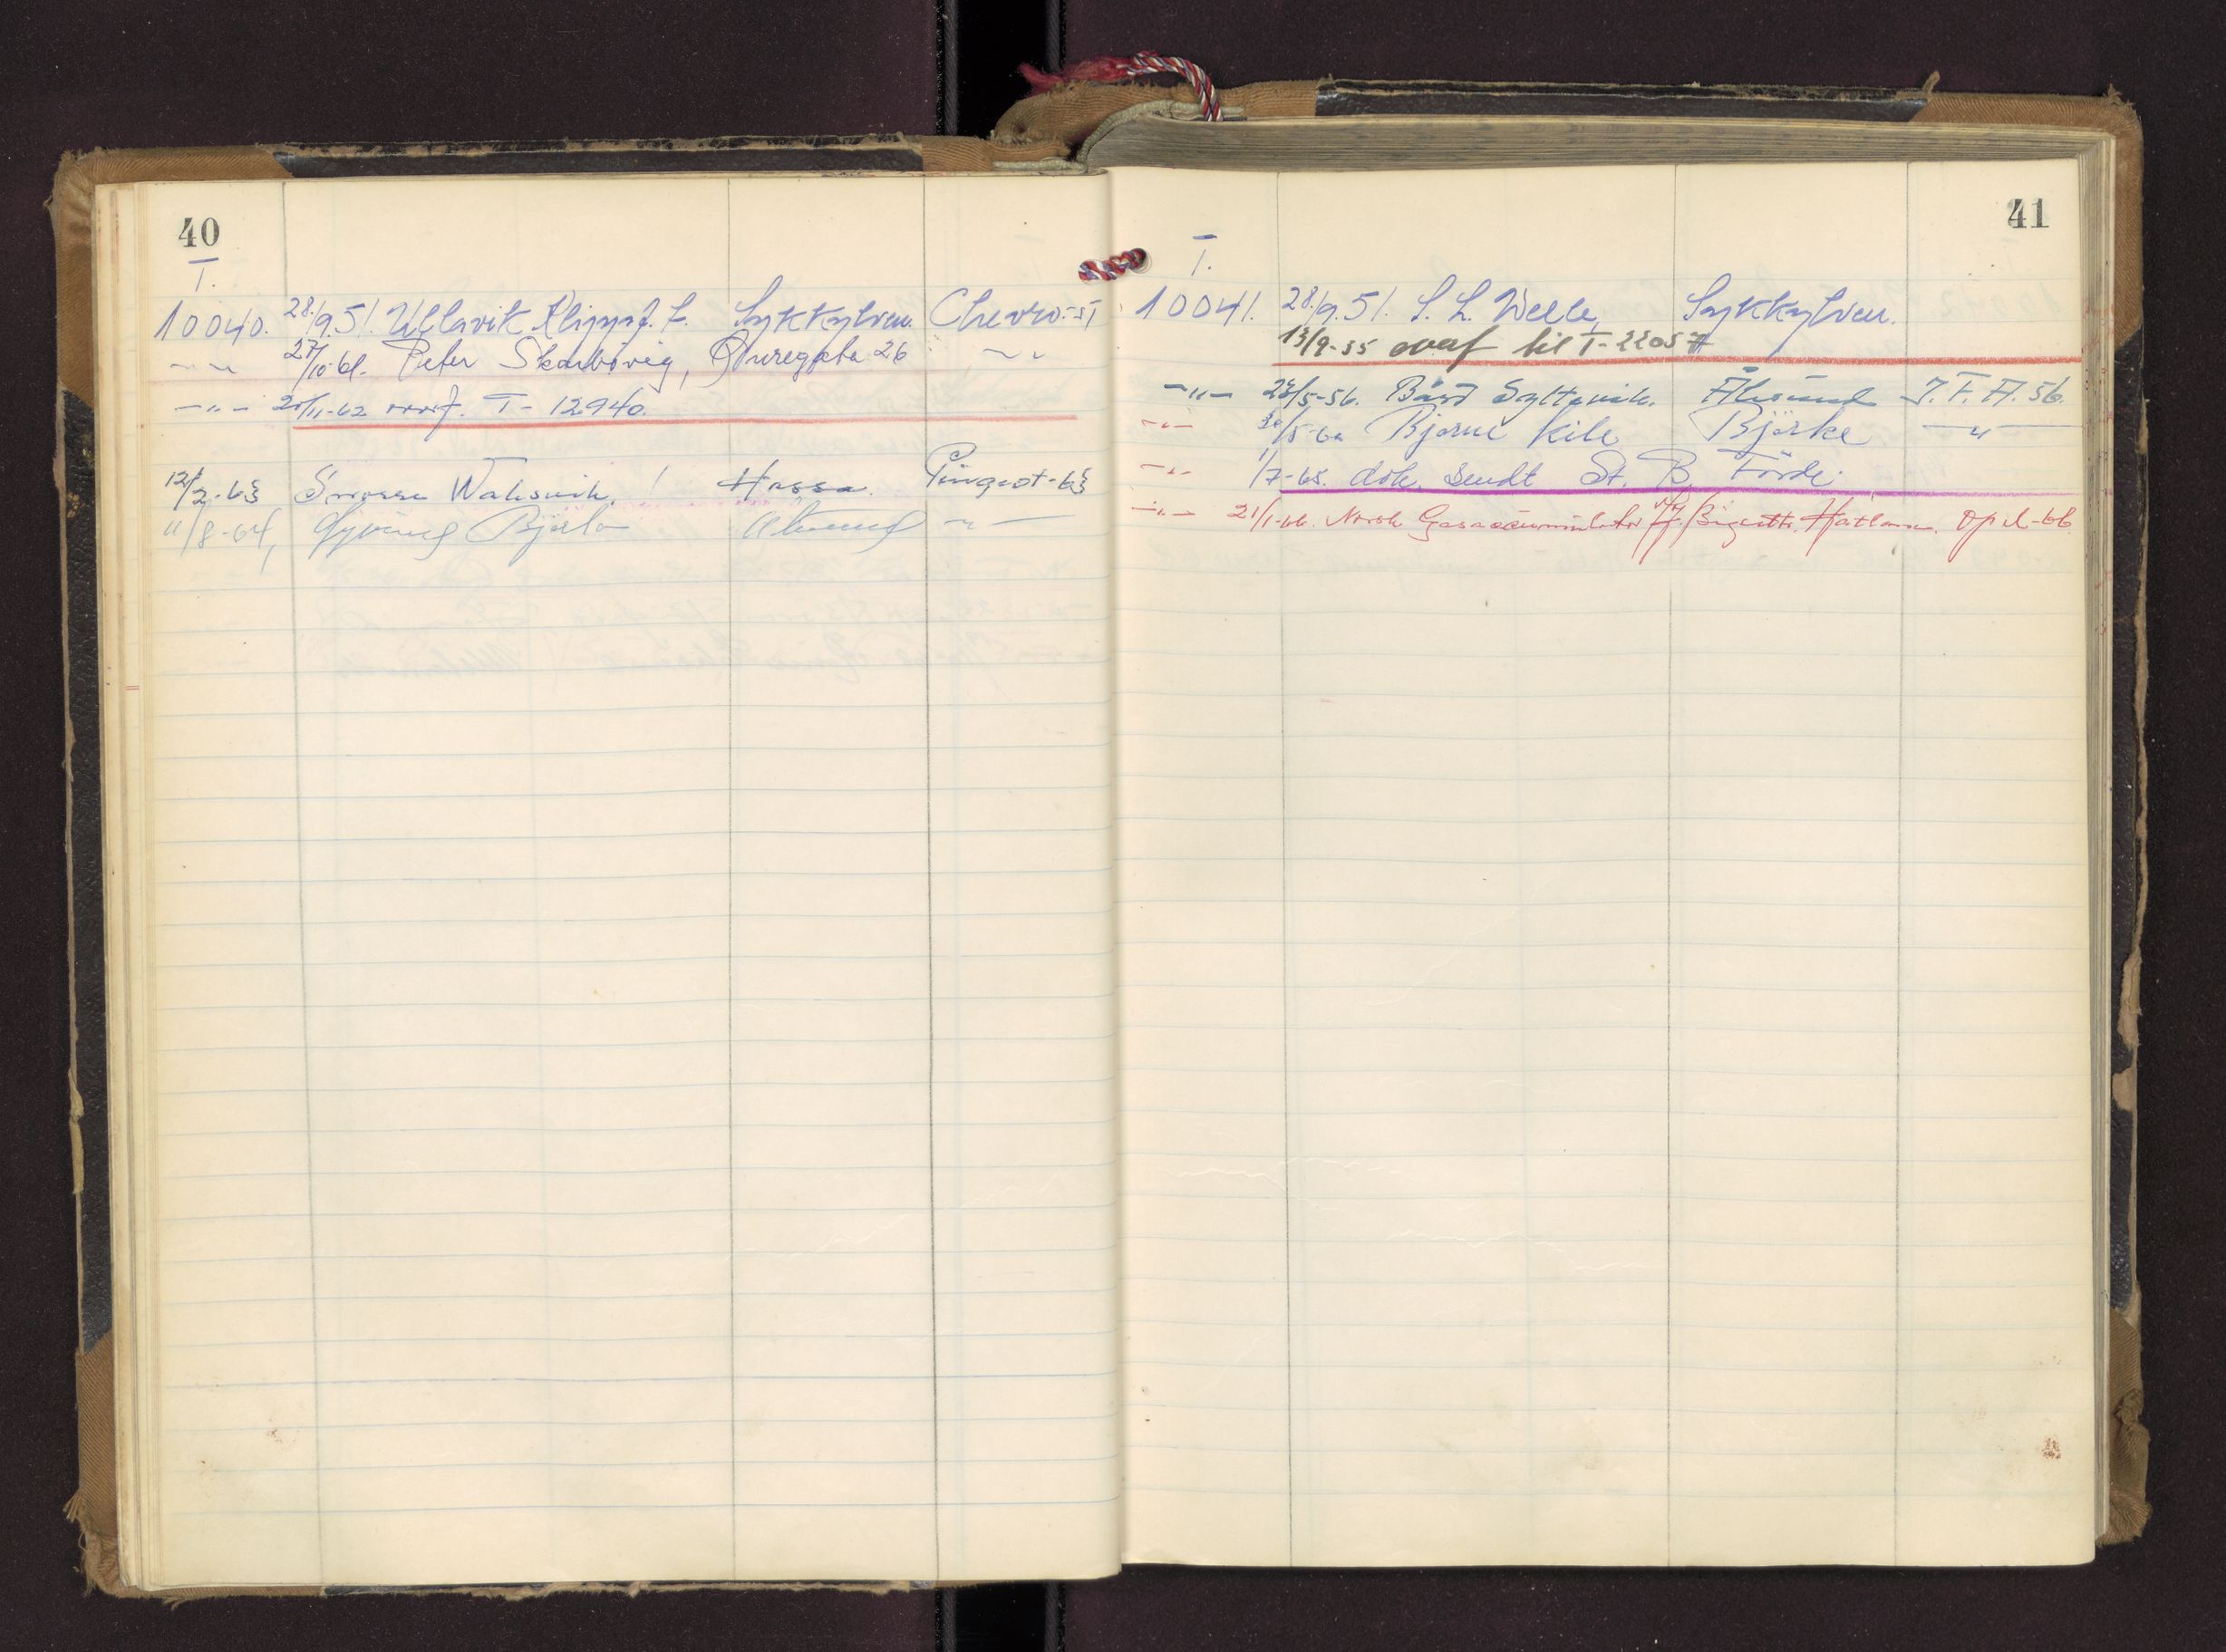 40
T.
10040. 28/9.51. Ullavik Klippf. L. Sykkylven. Chevro.-51
-"- 27/10-61. Peter Skarbövig, Ouregata 26 -"-
-"- 20/11-62 overf. T-12940.
12/2-63 Waksvik, Hessa. Peugeot-63
11/8-64, Gyving Ålesund -"-
41
T.
10041. 28/9.51. S. L. Welle, Sykkylven.
13/9-55 overf til T-22057
-"- 23/5-56. Bård Syltevik. Ålesund I.F.A. 56.
-"- 30/5-60 Bjarne Kile Bjørke -"-
-"- 1/7-65. dok. sendt St. B. Förde.
-"- 21/1-66. Norsk Gasaccumulator Hatlane. Opel-66